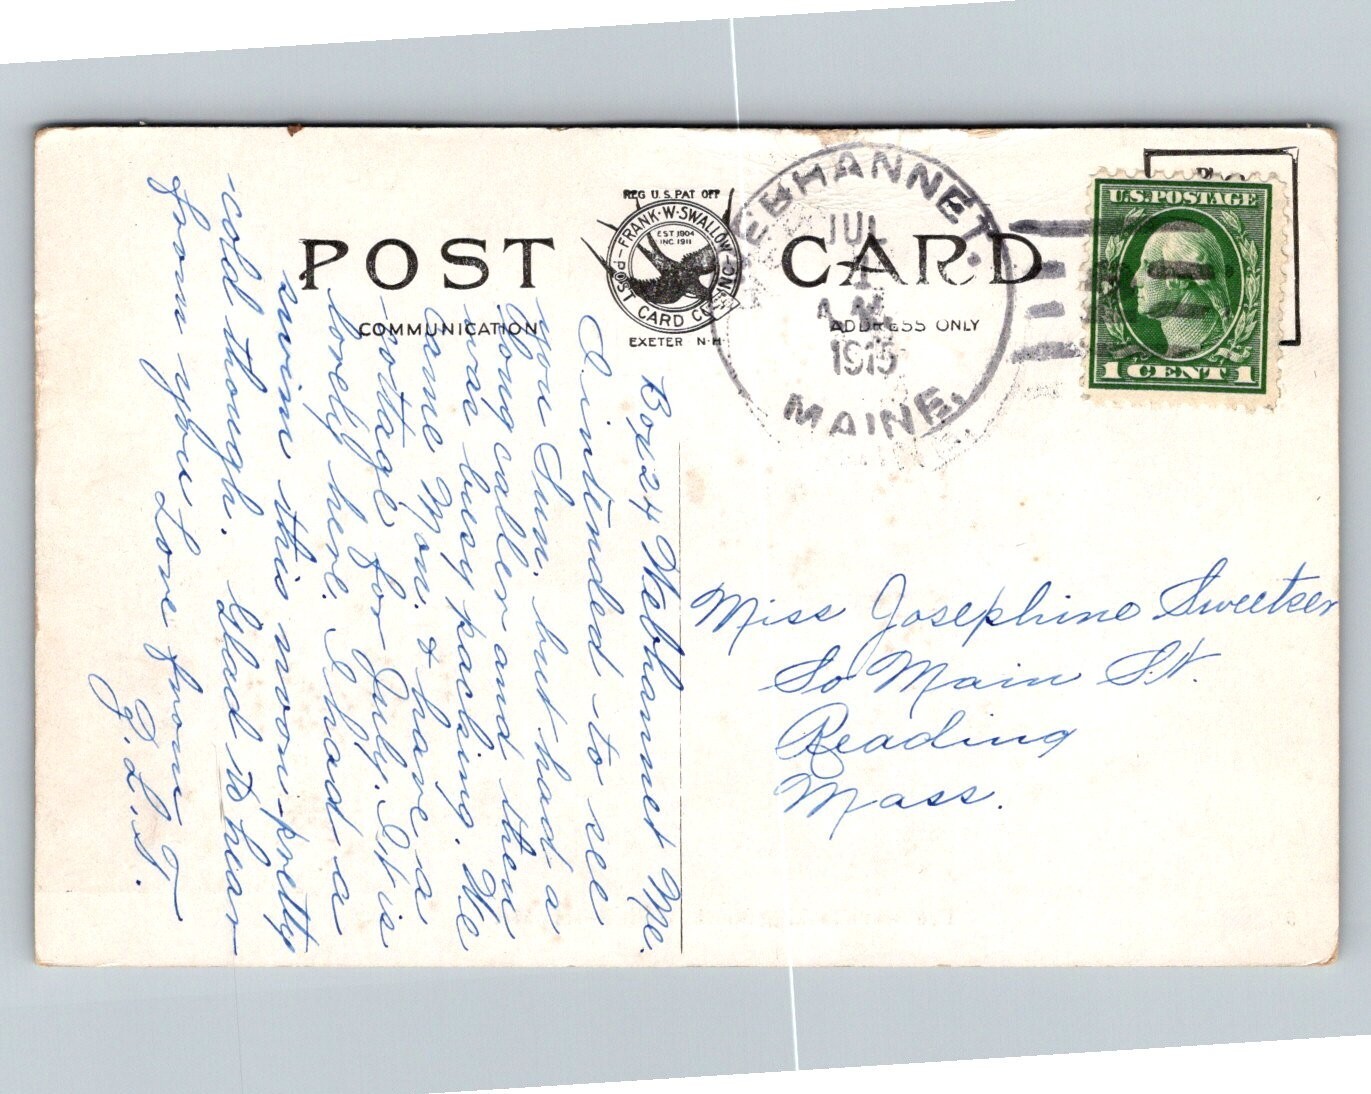 REG U.S. PAT OFF
FRANK·W·SWALLOW
POST CARD CO. INC
EST 1904
INC 1911
EXETER N·H
POST CARD
COMMUNICATION
ADDRESS ONLY
WEBHANNET.
JUL
1
A.M.
1915
MAINE.
U.S. POSTAGE
1 CENT 1
Box 24 Webhannet Me.
I intended to see
you Sun. but had a
long caller and then
was busy packing. We
came Mon. & have a
cottage for July. It is
lovely here. I had a
swim this morn-pretty
cold though. Glad to hear
from you. Love from
G. L. T.
Miss Josephine Sweetser
So Main St.
Reading
Mass.